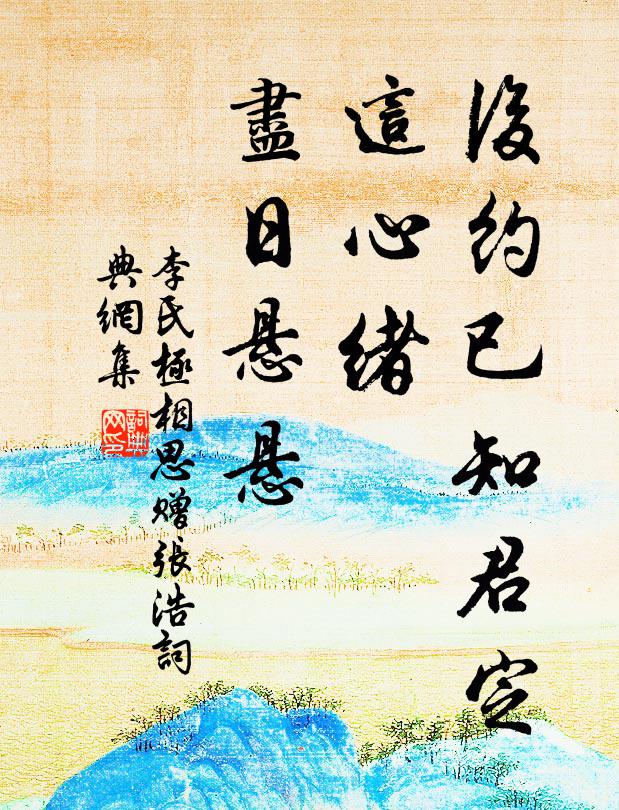 後約已知君定
這心緒
盡日懸懸
李氏極相思贈張浩詞
典網集
詞典網印